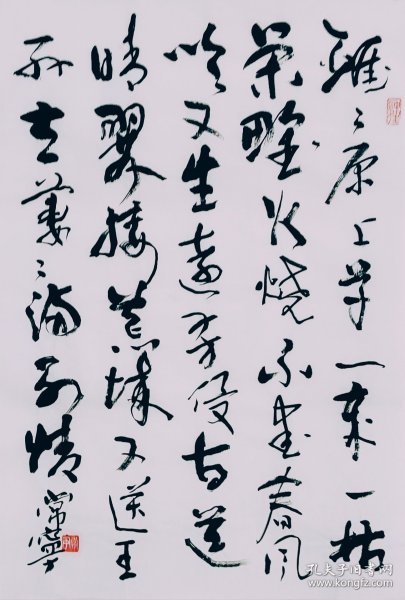 離々原上草一歲一枯
榮野火燒不盡春風
吹又生遠芳侵古道
晴翠接荒城又送王
孫去萋々滿别情
常寧
孔夫子旧书网
www.kongfz.com